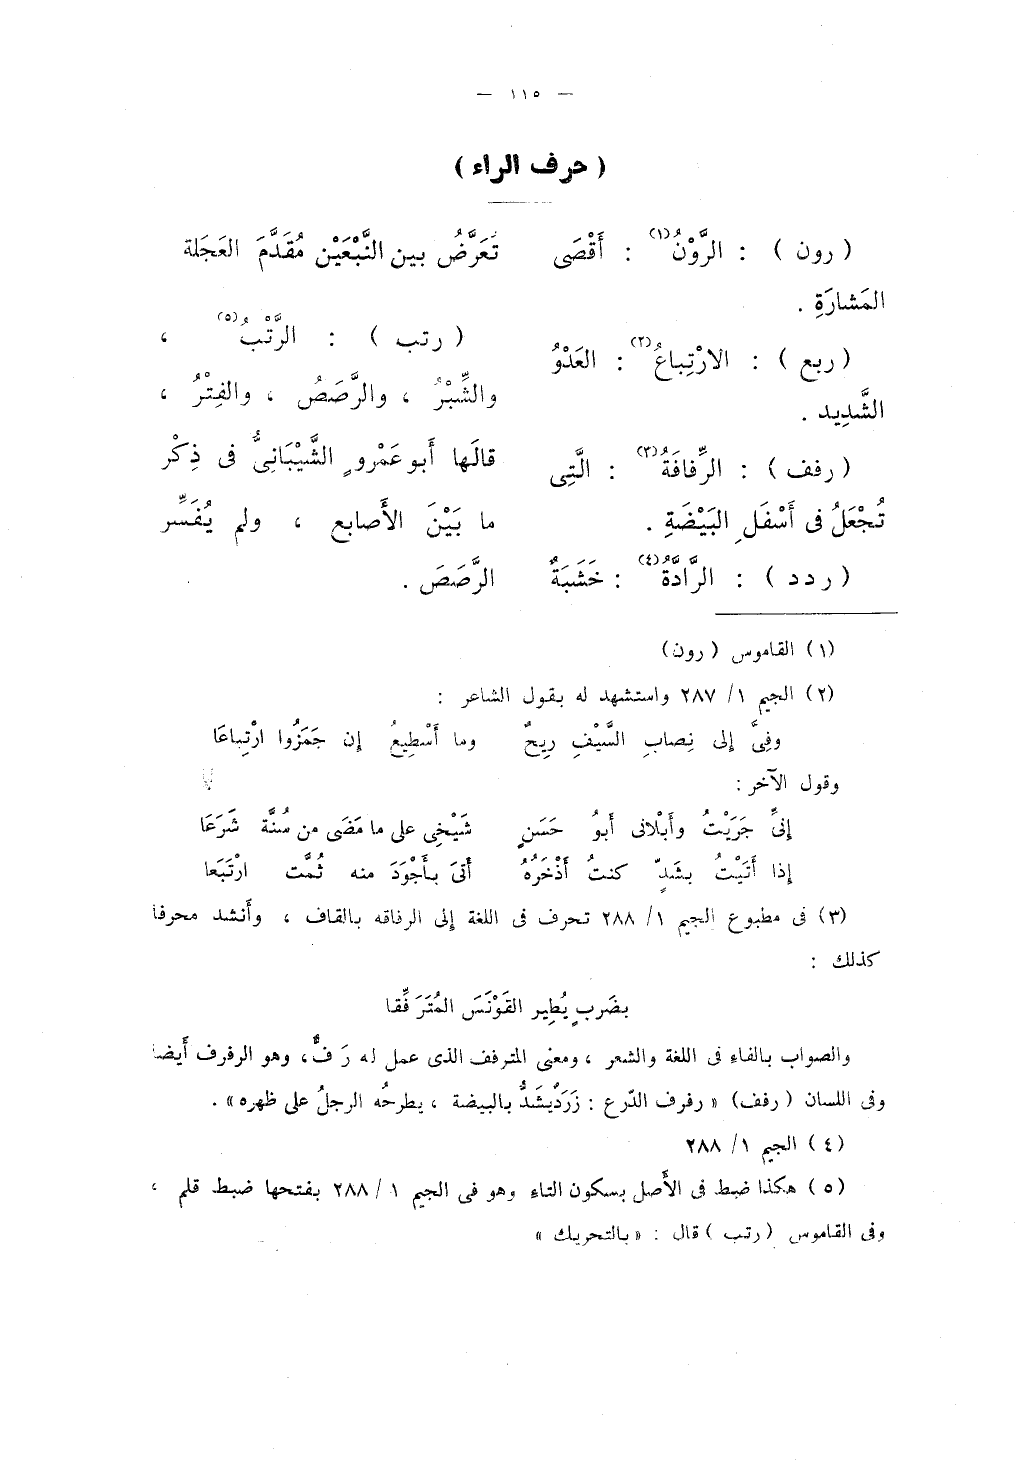 — ١١٥ —
( حرف الراء )
( رون ) : الرَّوْنُ(١) : أَقْصَى
المَشارَةِ .
( ربع ) : الارْتِباعُ(٢) : العَدْوُ
الشَّدِيد .
( رفف ) : الرِّفافَةُ(٣) : الَّتِى
تُجْعَلُ فى أَسْفَلِ البَيْضَةِ .
( ردد ) : الرَّادَّةُ(٤) : خَشَبَةٌ
تَعَرَّضُ بين النَّبْعَيْن مُقَدَّمَ العَجَلة
( رتب ) : الرَّتْبُ(٥) ،
والشِّبْرُ ، والرَّصَصُ ، والفِتْرُ ،
قالَها أَبو عَمْرو الشَّيْبَانِىُّ فى ذِكْر
ما بَيْنَ الأَصابع ، ولم يُفَسِّر
الرَّصَصَ .
(١) القاموس ( رون)
(٢) الجيم ١/ ٢٨٧ واستشهد له بقول الشاعر :
وفِىَّ إلى نِصابِ السَّيْفِ رِيحٌ وما أَسْطِيعُ إن جَمَزُوا ارْتِباعَا
وقول الآخر :
إنىِّ جَرَيْتُ وأَبْلانى أَبوُ حَسَنٍ شَيْخِى على ما مَضَى من سُنَّة شَرَعَا
إذا أَتَيْتُ بشَدٍّ كنتُ أَذْخَرُهُ أَتىَ بأَجْوَدَ منه ثُمَّت ارْتَبَعا
(٣) فى مطبوع الجيم ١/ ٢٨٨ تحرف فى اللغة إلى الرفاقه بالقاف ، وأَنشد محرفا
كذلك :
بضَربٍ يُطِير القَوْنَسَ المُتَرَفِّقا
والصواب بالفاء فى اللغة والشعر ، ومعنى المترفف الذى عمل له رَ فٌّ، وهو الرفرف أَيضا
وفى اللسان ( رفف) « رفرف الدّرع : زَرَدٌيشَدُّ بالبيضة ، يطرحُه الرجلُ على ظهره» .
(٤) الجيم ١/ ٢٨٨
(٥) هكذا ضبط فى الأَصل بسكون التاء وهو فى الجيم ١/ ٢٨٨ بفتحها ضبط قلم ،
وفى القاموس ( رتب ) قال : « بالتحريك »